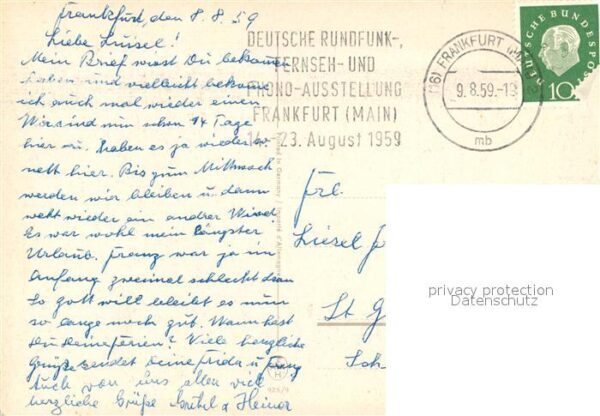 Frankfurt, den 8.8.59
Liebe Liesel!
Mein Brief wirst Du bekommen
haben und vielleicht bekomme
ich auch mal wieder einen
Wir sind nun schon 14 Tage
hier u. haben es ja wieder so
nett hier. Bis zum Mittwoch
werden wir bleiben u. dann
weht wieder ein andrer Wind.
Es war wohl mein längster
Urlaub. Franz war ja im
Anfang zweimal schlecht dran
So Gott will bleibt es nun
so lange noch gut. Wann hast
Du Deine Ferien? Viele herzliche
Grüße sendet Deine Frida u. Franz
Auch von uns allen viel
herzliche Grüße Gretel u Heiner
DEUTSCHE RUNDFUNK-,
FERNSEH- UND
PHONO-AUSSTELLUNG
FRANKFURT (MAIN)
14.-23. August 1959
(16) FRANKFURT (MA
9.8.59.-1
mb
DEUTSCHE BUNDESPOST
10
Frl.
Liesel
St G
privacy protection
Datenschutz